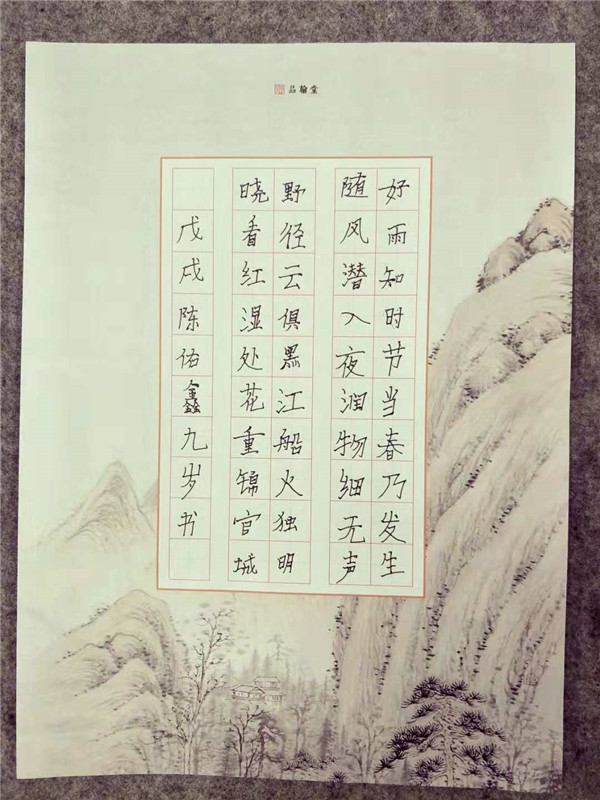 品翰堂
好雨知时节当春乃发生
随风潜入夜润物细无声
野径云俱黑江船火独明
晓看红湿处花重锦官城
戊戌陈佑鑫九岁书